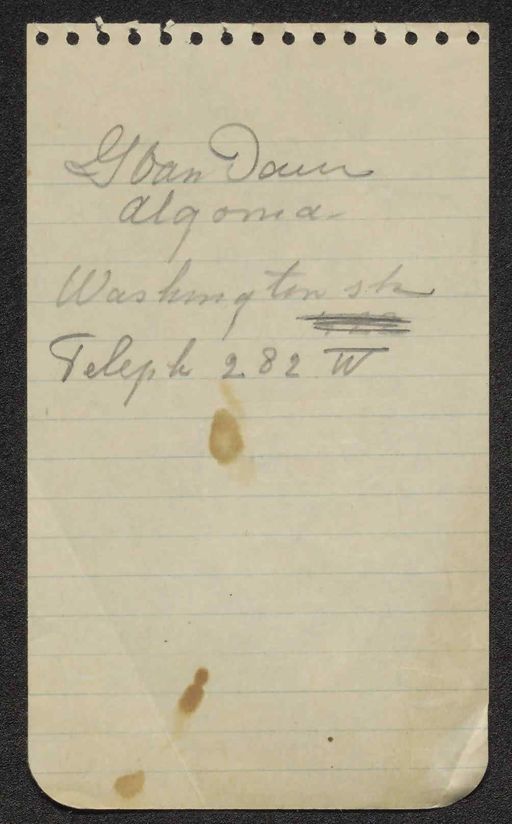 G Van Daun
Algoma
Washington str
Teleph 282 W